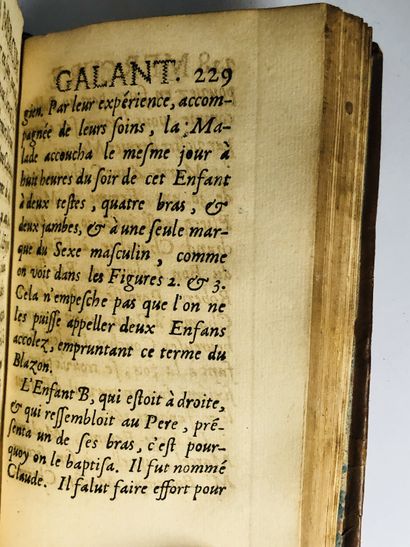 GALANT. 229
gien. Par leur expérience, accom-
pagnée de leurs soins, la Ma-
lade accoucha le mesme jour à
huit heures du soir de cet Enfant
à deux testes, quatre bras, &
deux jambes, & à une seule mar-
que du Sexe masculin, comme
on voit dans les Figures 2. & 3.
Cela n'empesche pas que l'on ne
les puisse appeller deux Enfans
accolez, empruntant ce terme du
Blazon.
L'Enfant B, qui estoit à droite,
& qui ressembloit au Pere, pré-
senta un de ses bras, c'est pour-
quoy on le baptisa. Il fut nommé
Claude. Il falut faire effort pour